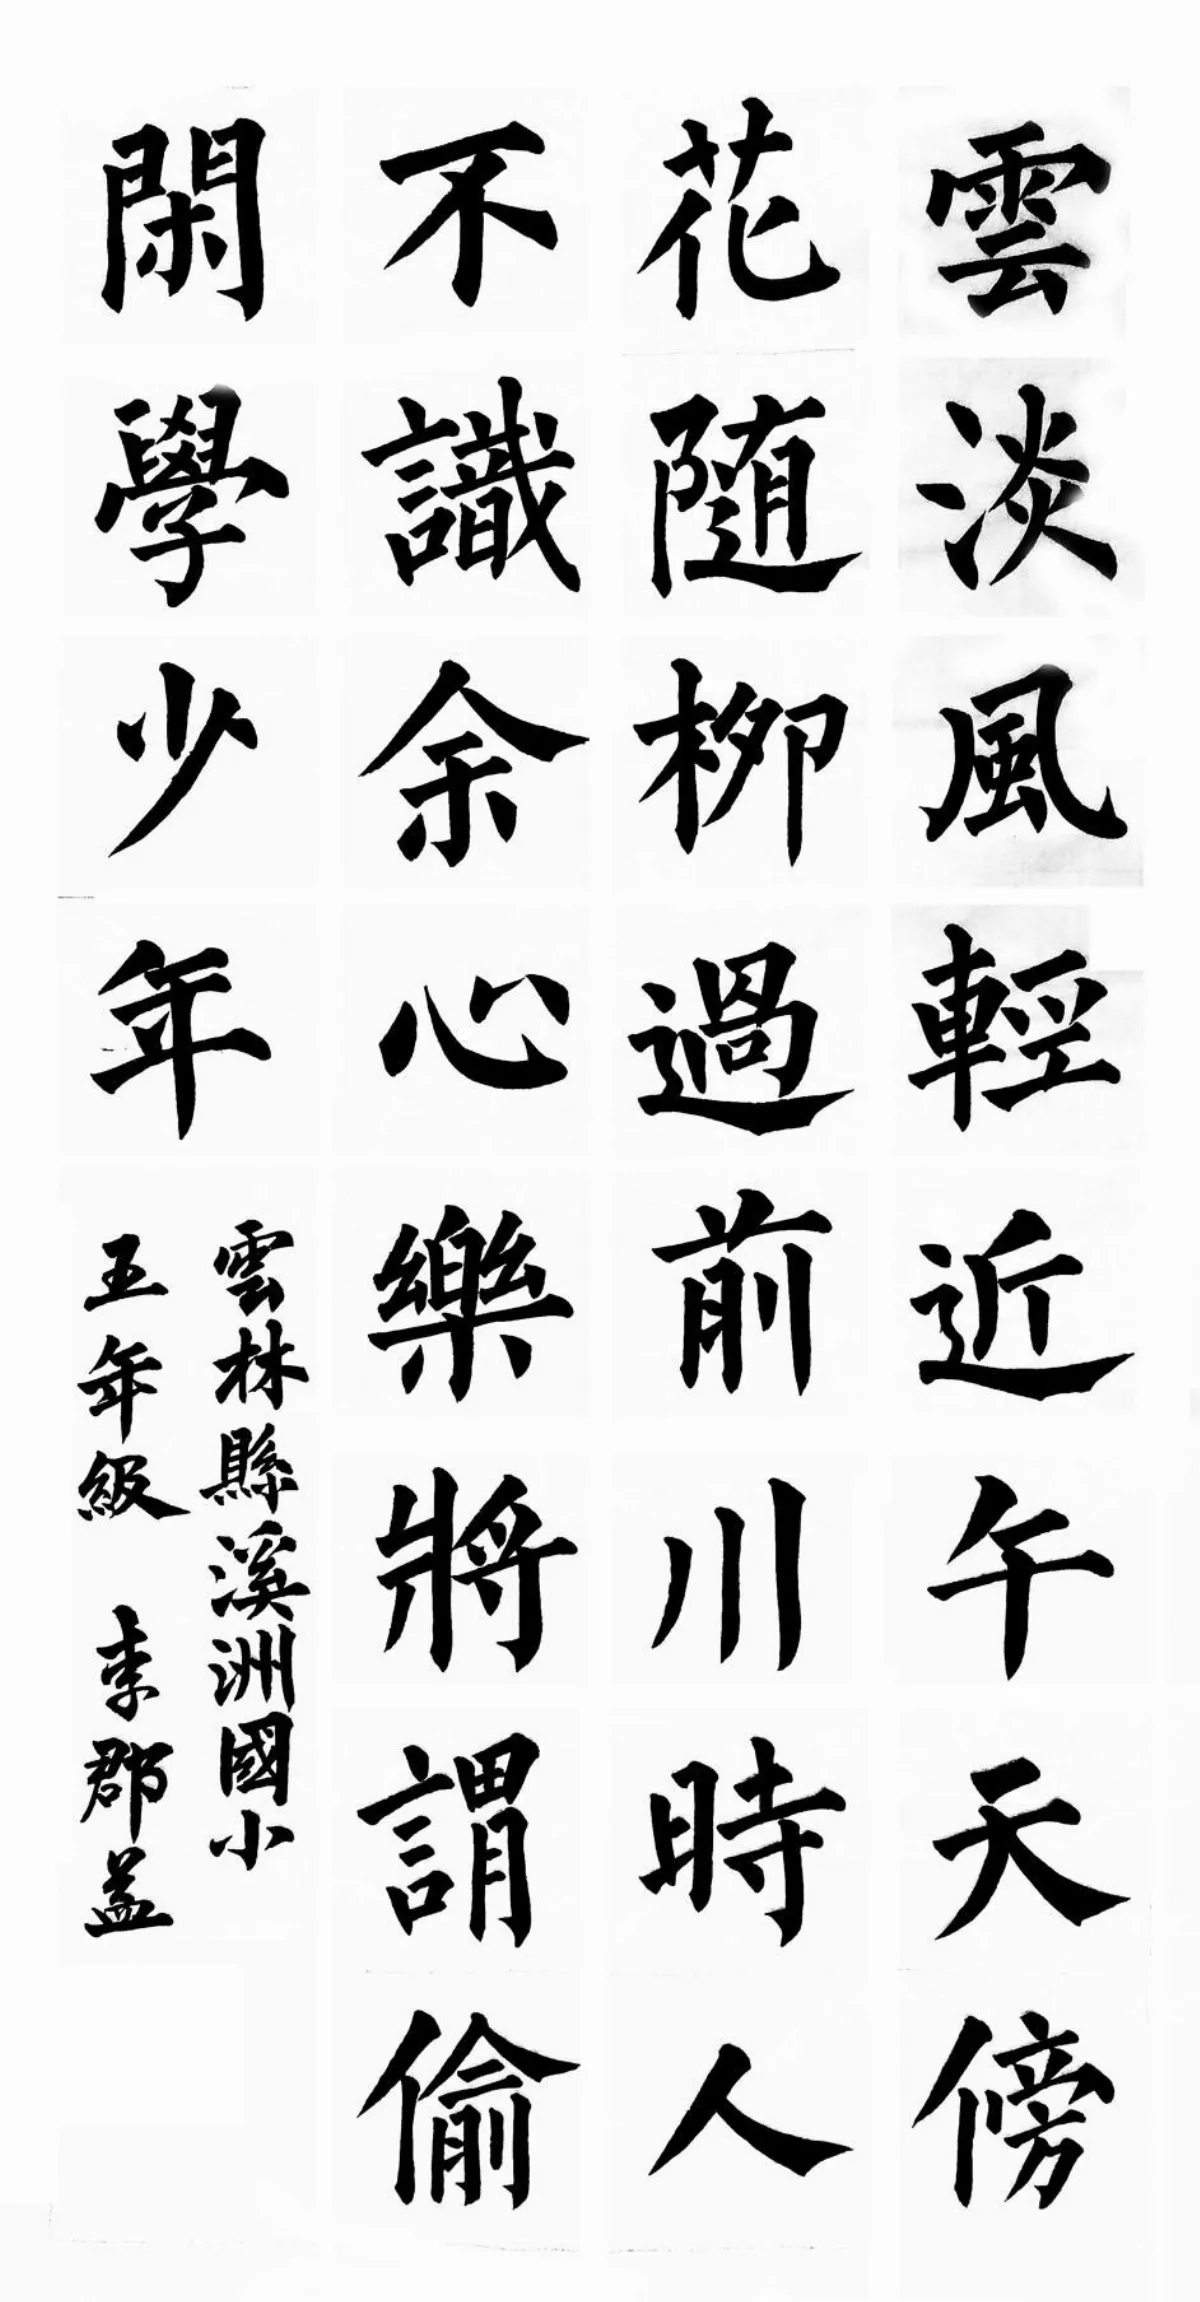 雲淡風輕近午天傍
花随柳過前川時人
不識余心樂將謂偷
閑學少年
雲林縣溪洲國小
五年級 李郡益